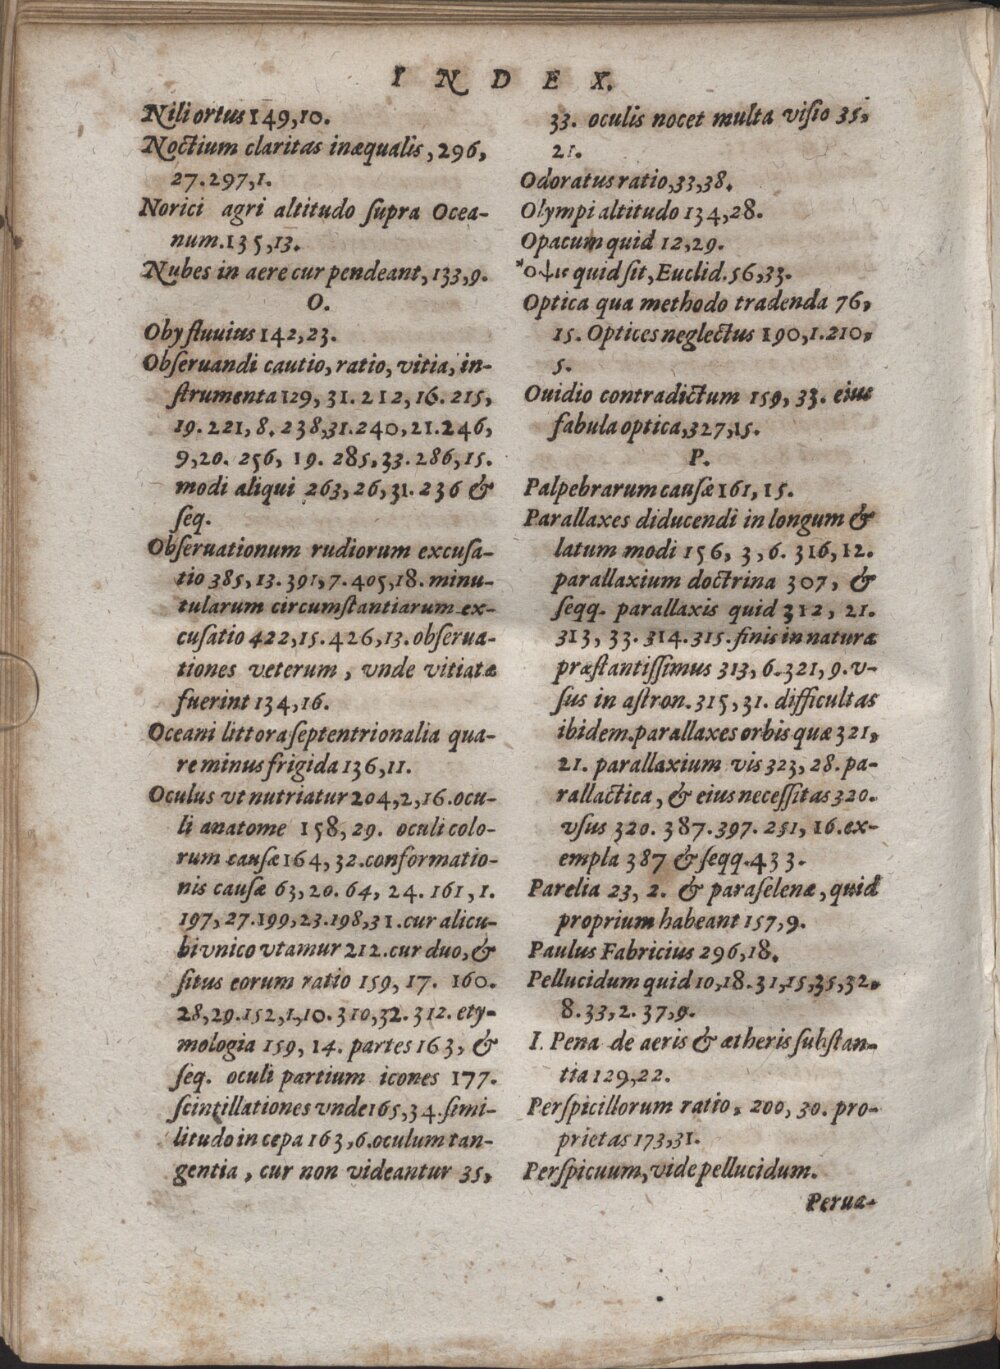 INDEX.
Nili ortus 149,10.
Noctium claritas inæqualis, 296,
27.297,1.
Norici agri altitudo ſupra Ocea-
num.135,13.
Nubes in aere cur pendeant, 133,9.
O.
Oby fluuius 142,23.
Obſeruandi cautio, ratio, vitia, in-
ſtrumenta 129, 31. 212, 16. 215,
19. 221, 8. 238,31.240,21.246,
9,20. 256, 19. 285,33.286,15.
modi aliqui 263,26,31. 236 &
ſeq.
Obſeruationum rudiorum excuſa-
tio 385,13.391,7.405,18. minu-
tularum circumſtantiarum ex-
cuſatio 422,15.426,13. obſerua-
tiones veterum, vnde vitiatæ
fuerint 134,16.
Oceani littora ſeptentrionalia qua-
re minus frigida 136,11.
Oculus vt nutriatur 204,2,16.ocu-
li anatome 158, 29. oculi colo-
rum cauſæ 164, 32.conformatio-
nis cauſæ 63, 20. 64, 24. 161, 1.
197, 27.199,23.198,31.cur alicu-
bi vnico vtamur 212.cur duo, &
ſitus eorum ratio 159, 17. 160.
28,29.152,1,10.310,32. 312. ety-
mologia 159, 14. partes 163, &
ſeq. oculi partium icones 177.
ſcintillationes vnde 165,34.ſimi-
litudo in cepa 163,6.oculum tan-
gentia, cur non videantur 35,
33. oculis nocet multa viſio 35,
21.
Odoratus ratio,33,38.
Olympi altitudo 134,28.
Opacum quid 12,29.
Ὄψις quid ſit, Euclid.56,33.
Optica qua methodo tradenda 76,
15. Optices neglectus 190,1.210,
5.
Ouidio contradictum 159, 33. eius
fabula optica,327,15.
P.
Palpebrarum cauſæ 161,15.
Parallaxes diducendi in longum &
latum modi 156, 3,6. 316,12.
parallaxium doctrina 307, &
ſeqq. parallaxis quid 312, 21.
313, 33. 314.315. finis in natura
præſtantiſſimus 313, 6.321, 9.v-
ſus in aſtron.315,31. difficultas
ibidem.parallaxes orbis quæ 321,
21. parallaxium vis 323, 28. pa-
rallactica, & eius neceſſitas 320.
vſus 320. 387.397. 251, 16.ex-
empla 387 & ſeqq.433.
Parelia 23, 2. & paraſelenæ, quid
proprium habeant 157,9.
Paulus Fabricius 296,18.
Pellucidum quid 10,18.31,15,35,32.
8.33,2. 37,9.
I. Pena de aeris & ætheris ſubſtan-
tia 129,22.
Perſpicillorum ratio, 200, 30. pro-
prietas 173,31.
Perſpicuum, vide pellucidum.
Perua-